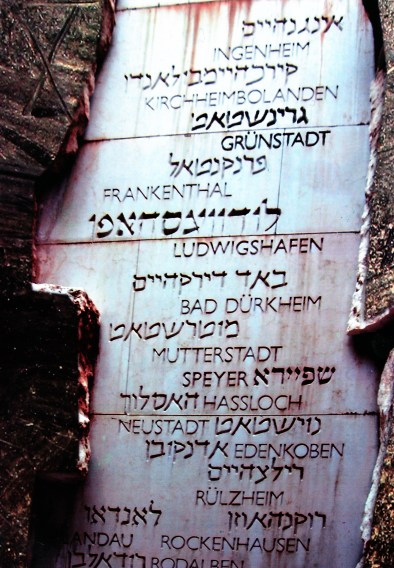 אינגנהיים
INGENHEIM
קירכהיימבילאנדן
KIRCHHEIMBOLANDEN
גרינשטאט
GRÜNSTADT
פרנקנטאל
FRANKENTHAL
לודוויגסהאפן
LUDWIGSHAFEN
באד דירקהיים
BAD DÜRKHEIM
מוטרשטאט
MUTTERSTADT
SPEYER שפיירא
האסלוך HASSLOCH
NEUSTADT נוישטאט
אדנקובן EDENKOBEN
רילצהיים
RÜLZHEIM
לאנדאו רוקנהאוזן
LANDAU ROCKENHAUSEN
רודאלבן RODALBEN